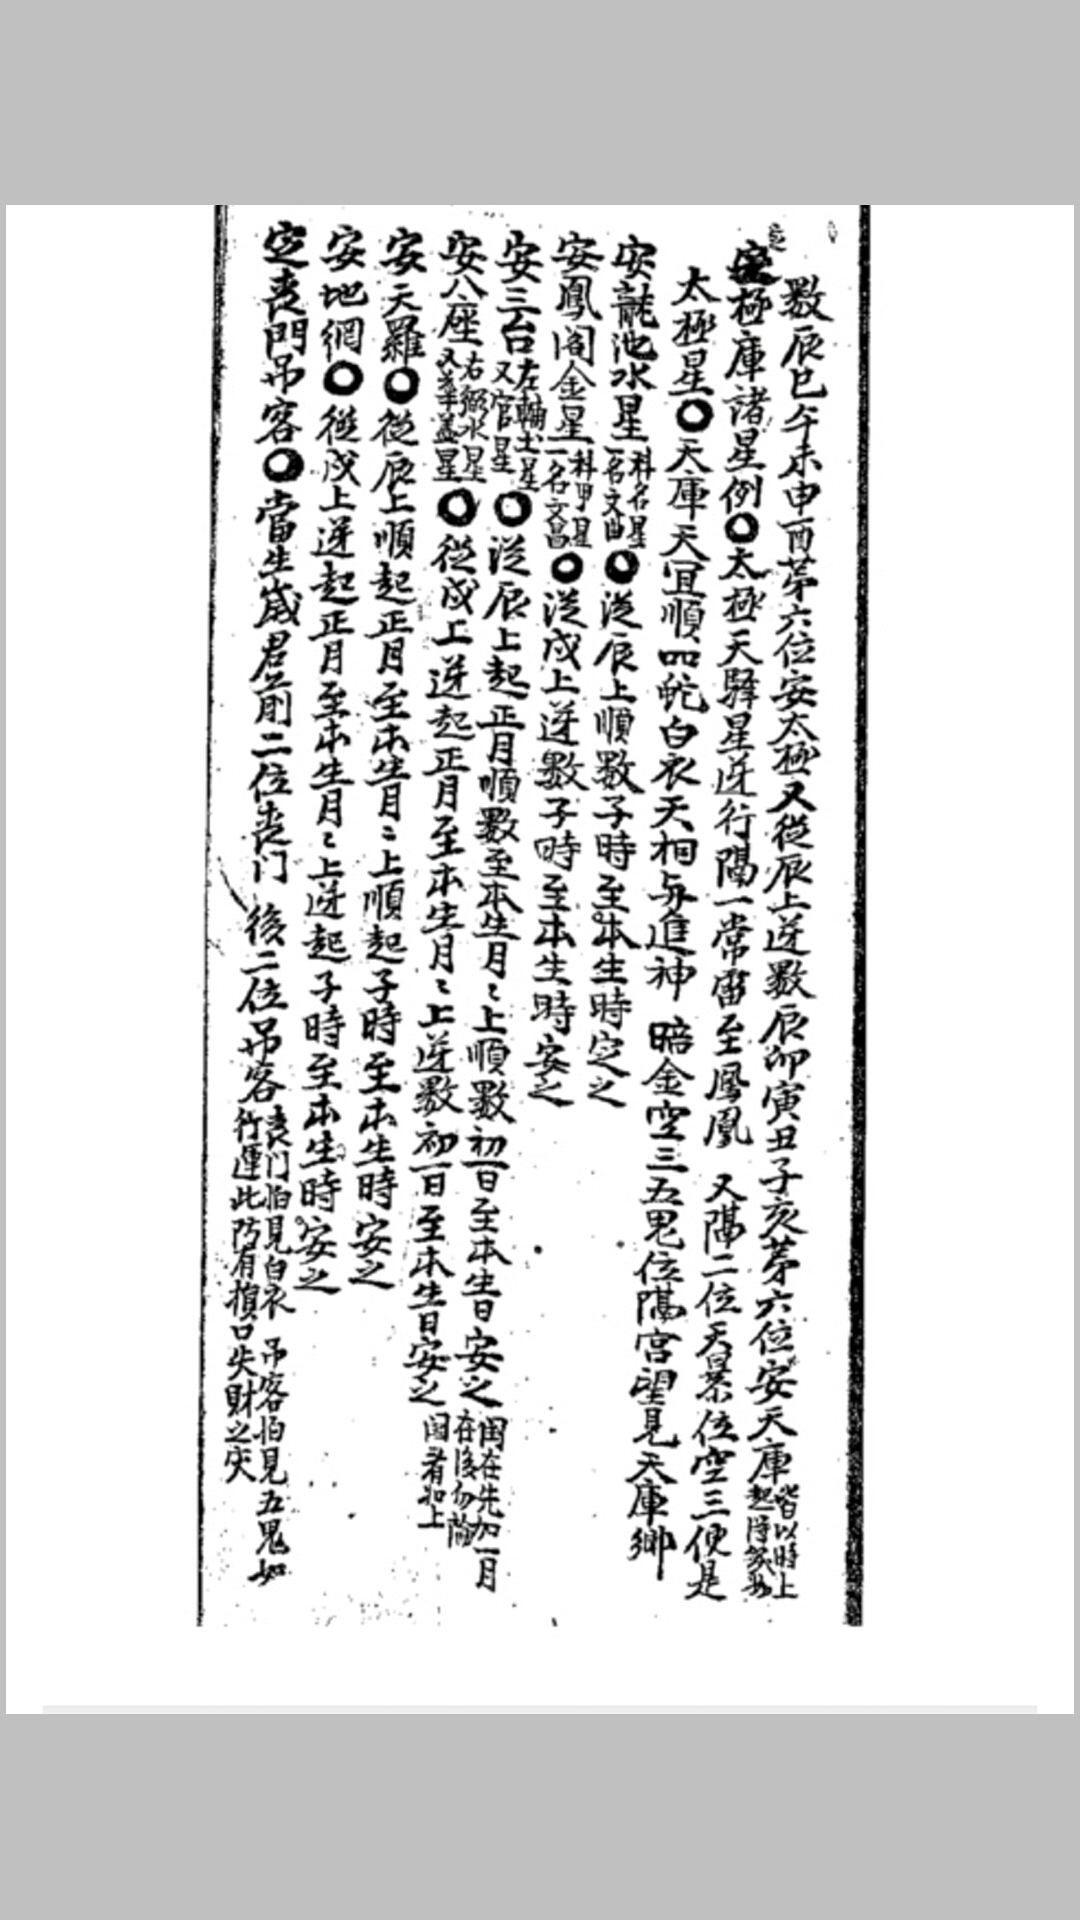 數辰巳午未申酉苐六位安太極又從辰上逆數辰卯寅丑子亥苐六位安天庫
皆以時上
起
定極庫諸星例〇太極天驛星逆行隔一常雷至鳳凰 又隔二位天暴位空三便是
太極星〇天庫天冝順四蛇白衣天相与進神 暗金空三五鬼位隔宮望見天庫鄉
安龍池水星
科名星
一名文曲
〇従辰上順數子時至本生時定之
安鳳阁金星
科甲星
一名文昌
〇従戌上逆數子時至本生時安之
安三台
左輔土星
又官星
〇従辰上起正月順數至本生月〻上順數初一日至本生日安之
閏在先加一月
在後勿論
安八座
右弼水星
又華盖星
〇從戌上逆起正月至本生月〻上逆數初一日至本生日安之
閏者如上
安天羅〇從辰上順起正月至本生月〻上順起子時至本生時安之
安地網〇從戌上逆起正月至本生月〻上逆起子時至本生時安之
定喪門吊客〇當生歲君前二位喪门 後二位吊客
喪门怕見白衣 吊客怕見五鬼如
行運此防有損口失財之灾